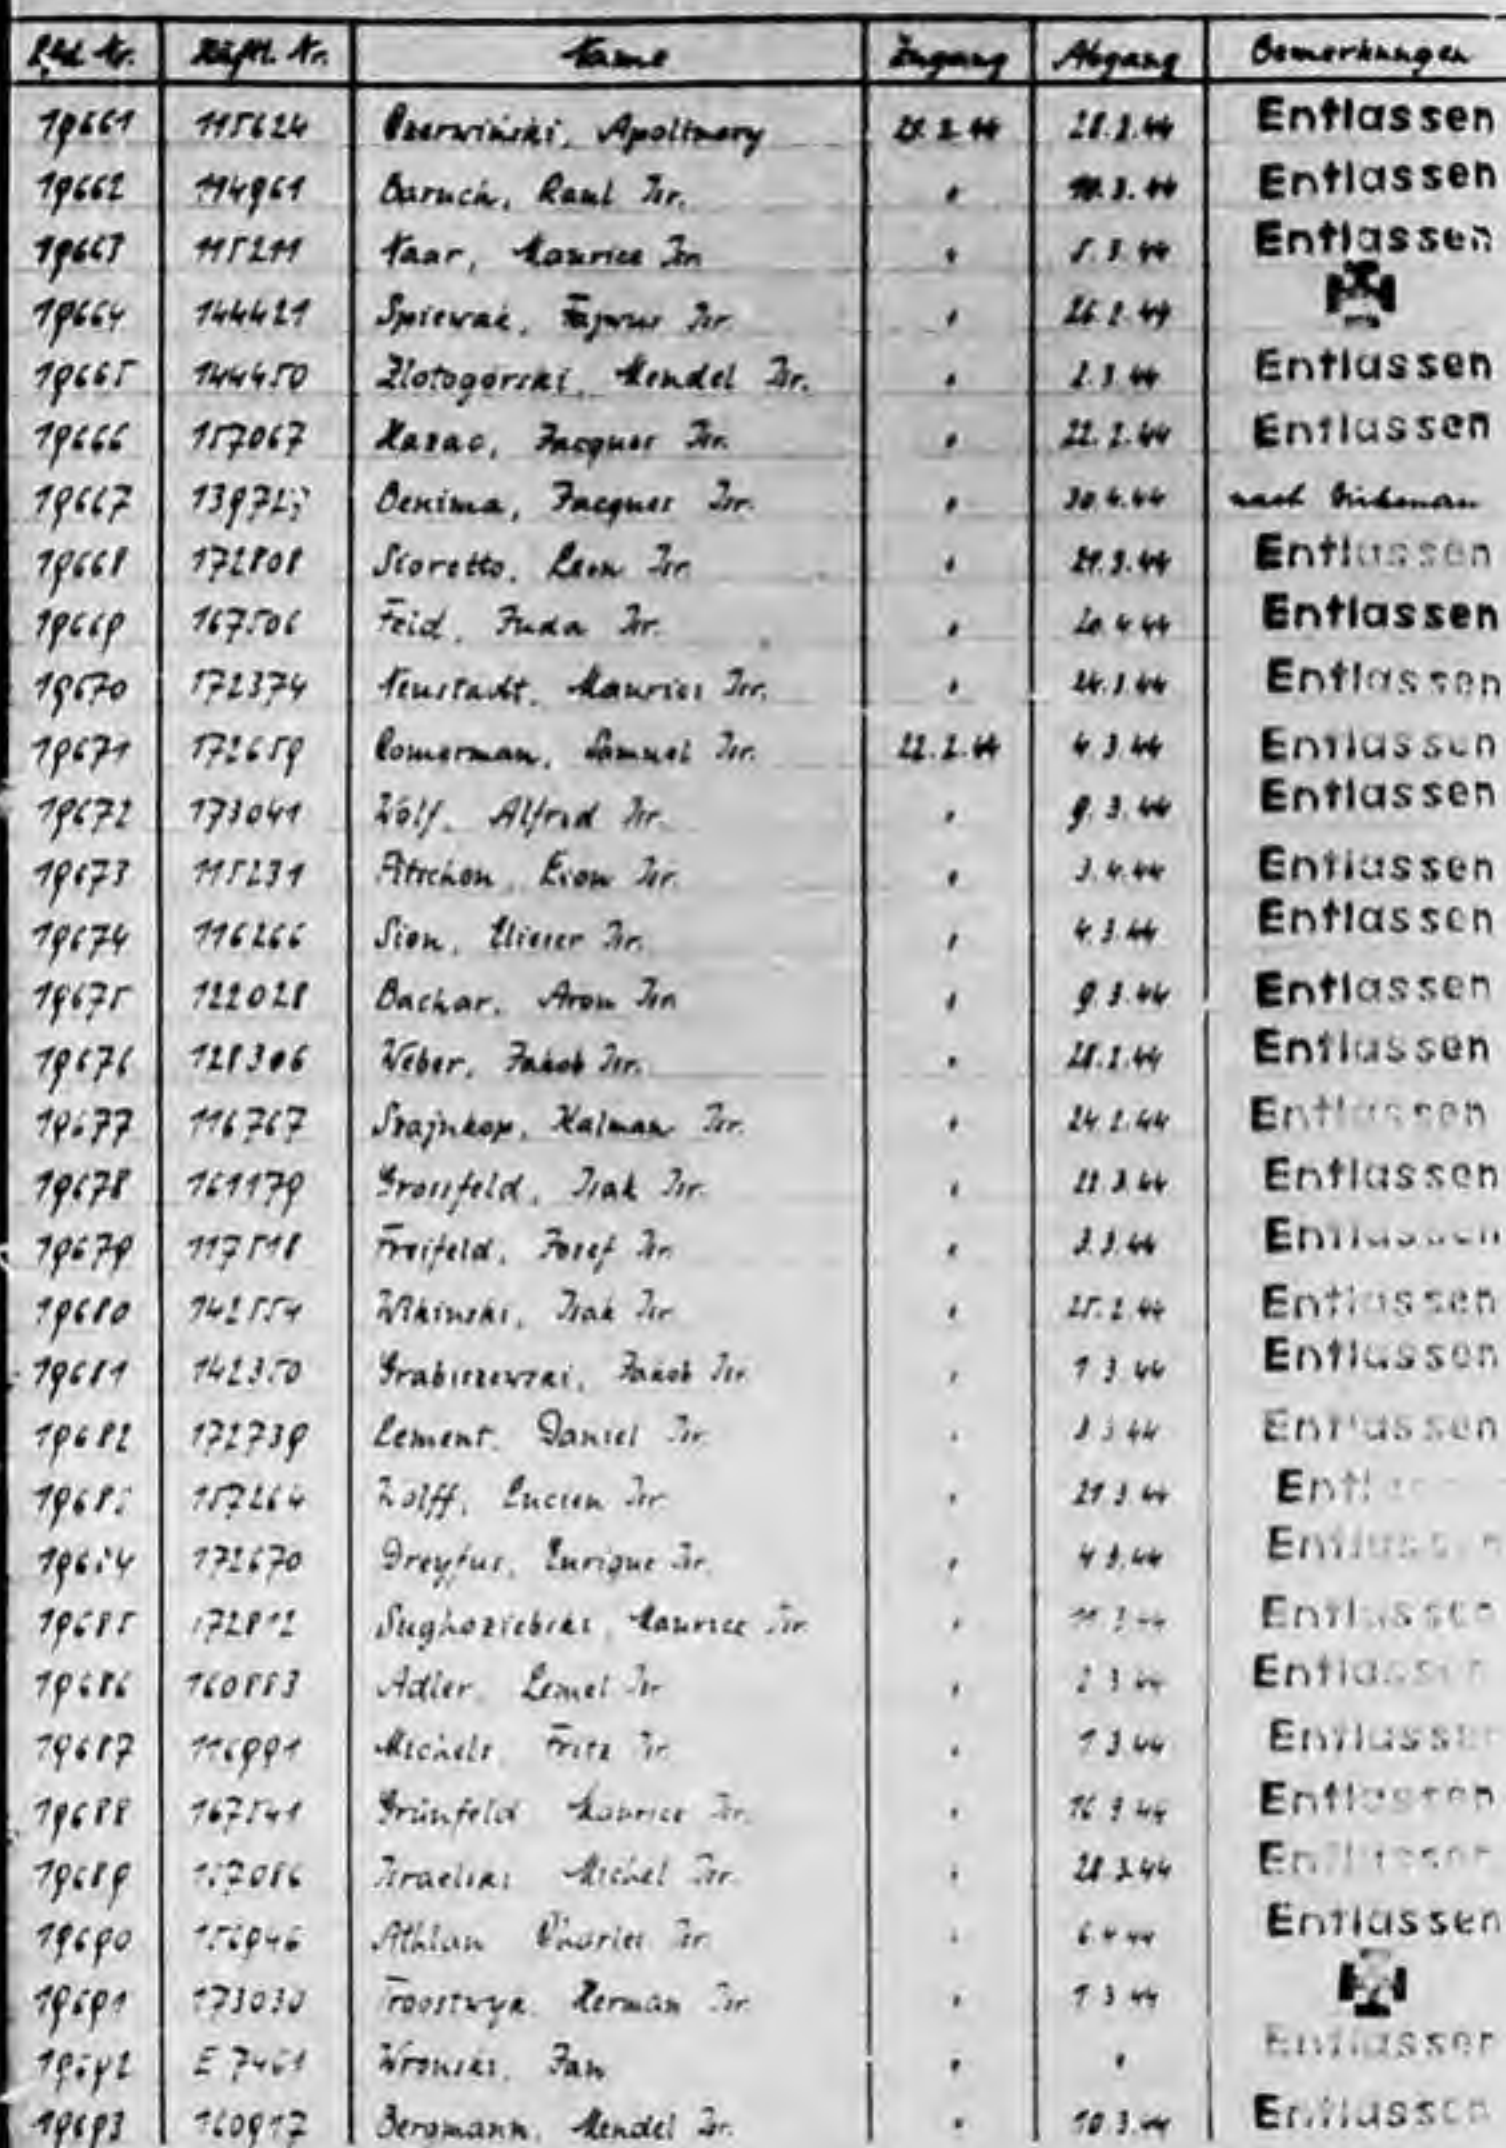 Lfd. Nr. Häftl. Nr. Name Zugang Abgang Bemerkungen
19661 115624 Czerwiński, Apolinary 21.2.44 28.2.44 Entlassen
19662 114961 Baruch, Raul Isr. " 10.3.44 Entlassen
19663 115211 Naar, Maurice Isr. " 5.3.44 Entlassen
19664 144421 Spiewak, Fajwus Isr. " 26.2.44
19665 144450 Zlotogórski, Mendel Isr. " 2.3.44 Entlassen
19666 157067 Hazac, Jacques Isr. " 22.2.44 Entlassen
19667 Benima, Jacques Isr. " 30.4.44 nach Birkenau
19668 172808 Storetto, Leon Isr. " 21.3.44 Entlassen
19669 167506 Feid, Juda Isr. " 20.4.44 Entlassen
19670 172374 Neustadt, Maurice Isr. " 24.3.44 Entlassen
19671 172659 Komerman, Samuel Isr. 22.2.44 4.3.44 Entlassen
19672 173041 Wolf, Alfred Isr. " 9.3.44 Entlassen
19673 115231 Pitschon, Leon Isr. " 3.4.44 Entlassen
19674 116266 Sion, Elieser Isr. " 4.3.44 Entlassen
19675 122028 Bachar, Aron Isr. " 9.3.44 Entlassen
19676 128306 Weber, Jakob Isr. " 28.2.44 Entlassen
19677 116767 Szajnkop, Kalman Isr. " 24.2.44 Entlassen
19678 161179 Grossfeld, Isak Isr. " 22.3.44 Entlassen
19679 117518 Freifeld, Josef Isr. " 3.3.44 Entlassen
19680 142554 Wikinski, Isak Isr. " 25.2.44 Entlassen
19681 142350 Grabiszewski, Jakob Isr. " 1.3.44 Entlassen
19682 172739 Lement, Daniel Isr. " 3.44 Entlassen
157264 Wolff, Lucien Isr. " 21.3.44
172670 Dreyfus, Enrique Isr. " 4.3.44 Entlassen
19685 172812 Maurice Isr. " Entlassen
19686 160883 Adler, Lemel Isr. " 2.3.44 Entlassen
19687 116991 Michels, Fritz Isr. " 1.3.44 Entlassen
19688 167541 Grünfeld Maurice Isr. " 16.3.44 Entlassen
19689 157086 Israelski Michel Isr. " 28.3.44 Entlassen
19690 156946 Athlan Charles Isr. " 6.4.44 Entlassen
19691 173030 Troostwyk, Herman Isr. " 1.3.44
19692 E 7461 Wronski, Jan " " Entlassen
19693 160917 Bergmann, Mendel Isr. " 10.3.44 Entlassen